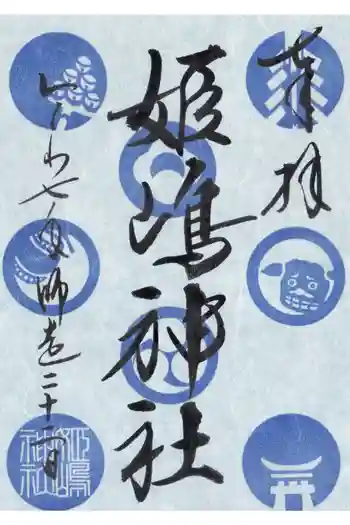 奉拝
姫嶋神社
令和七年師走二十一日
姫嶋神社